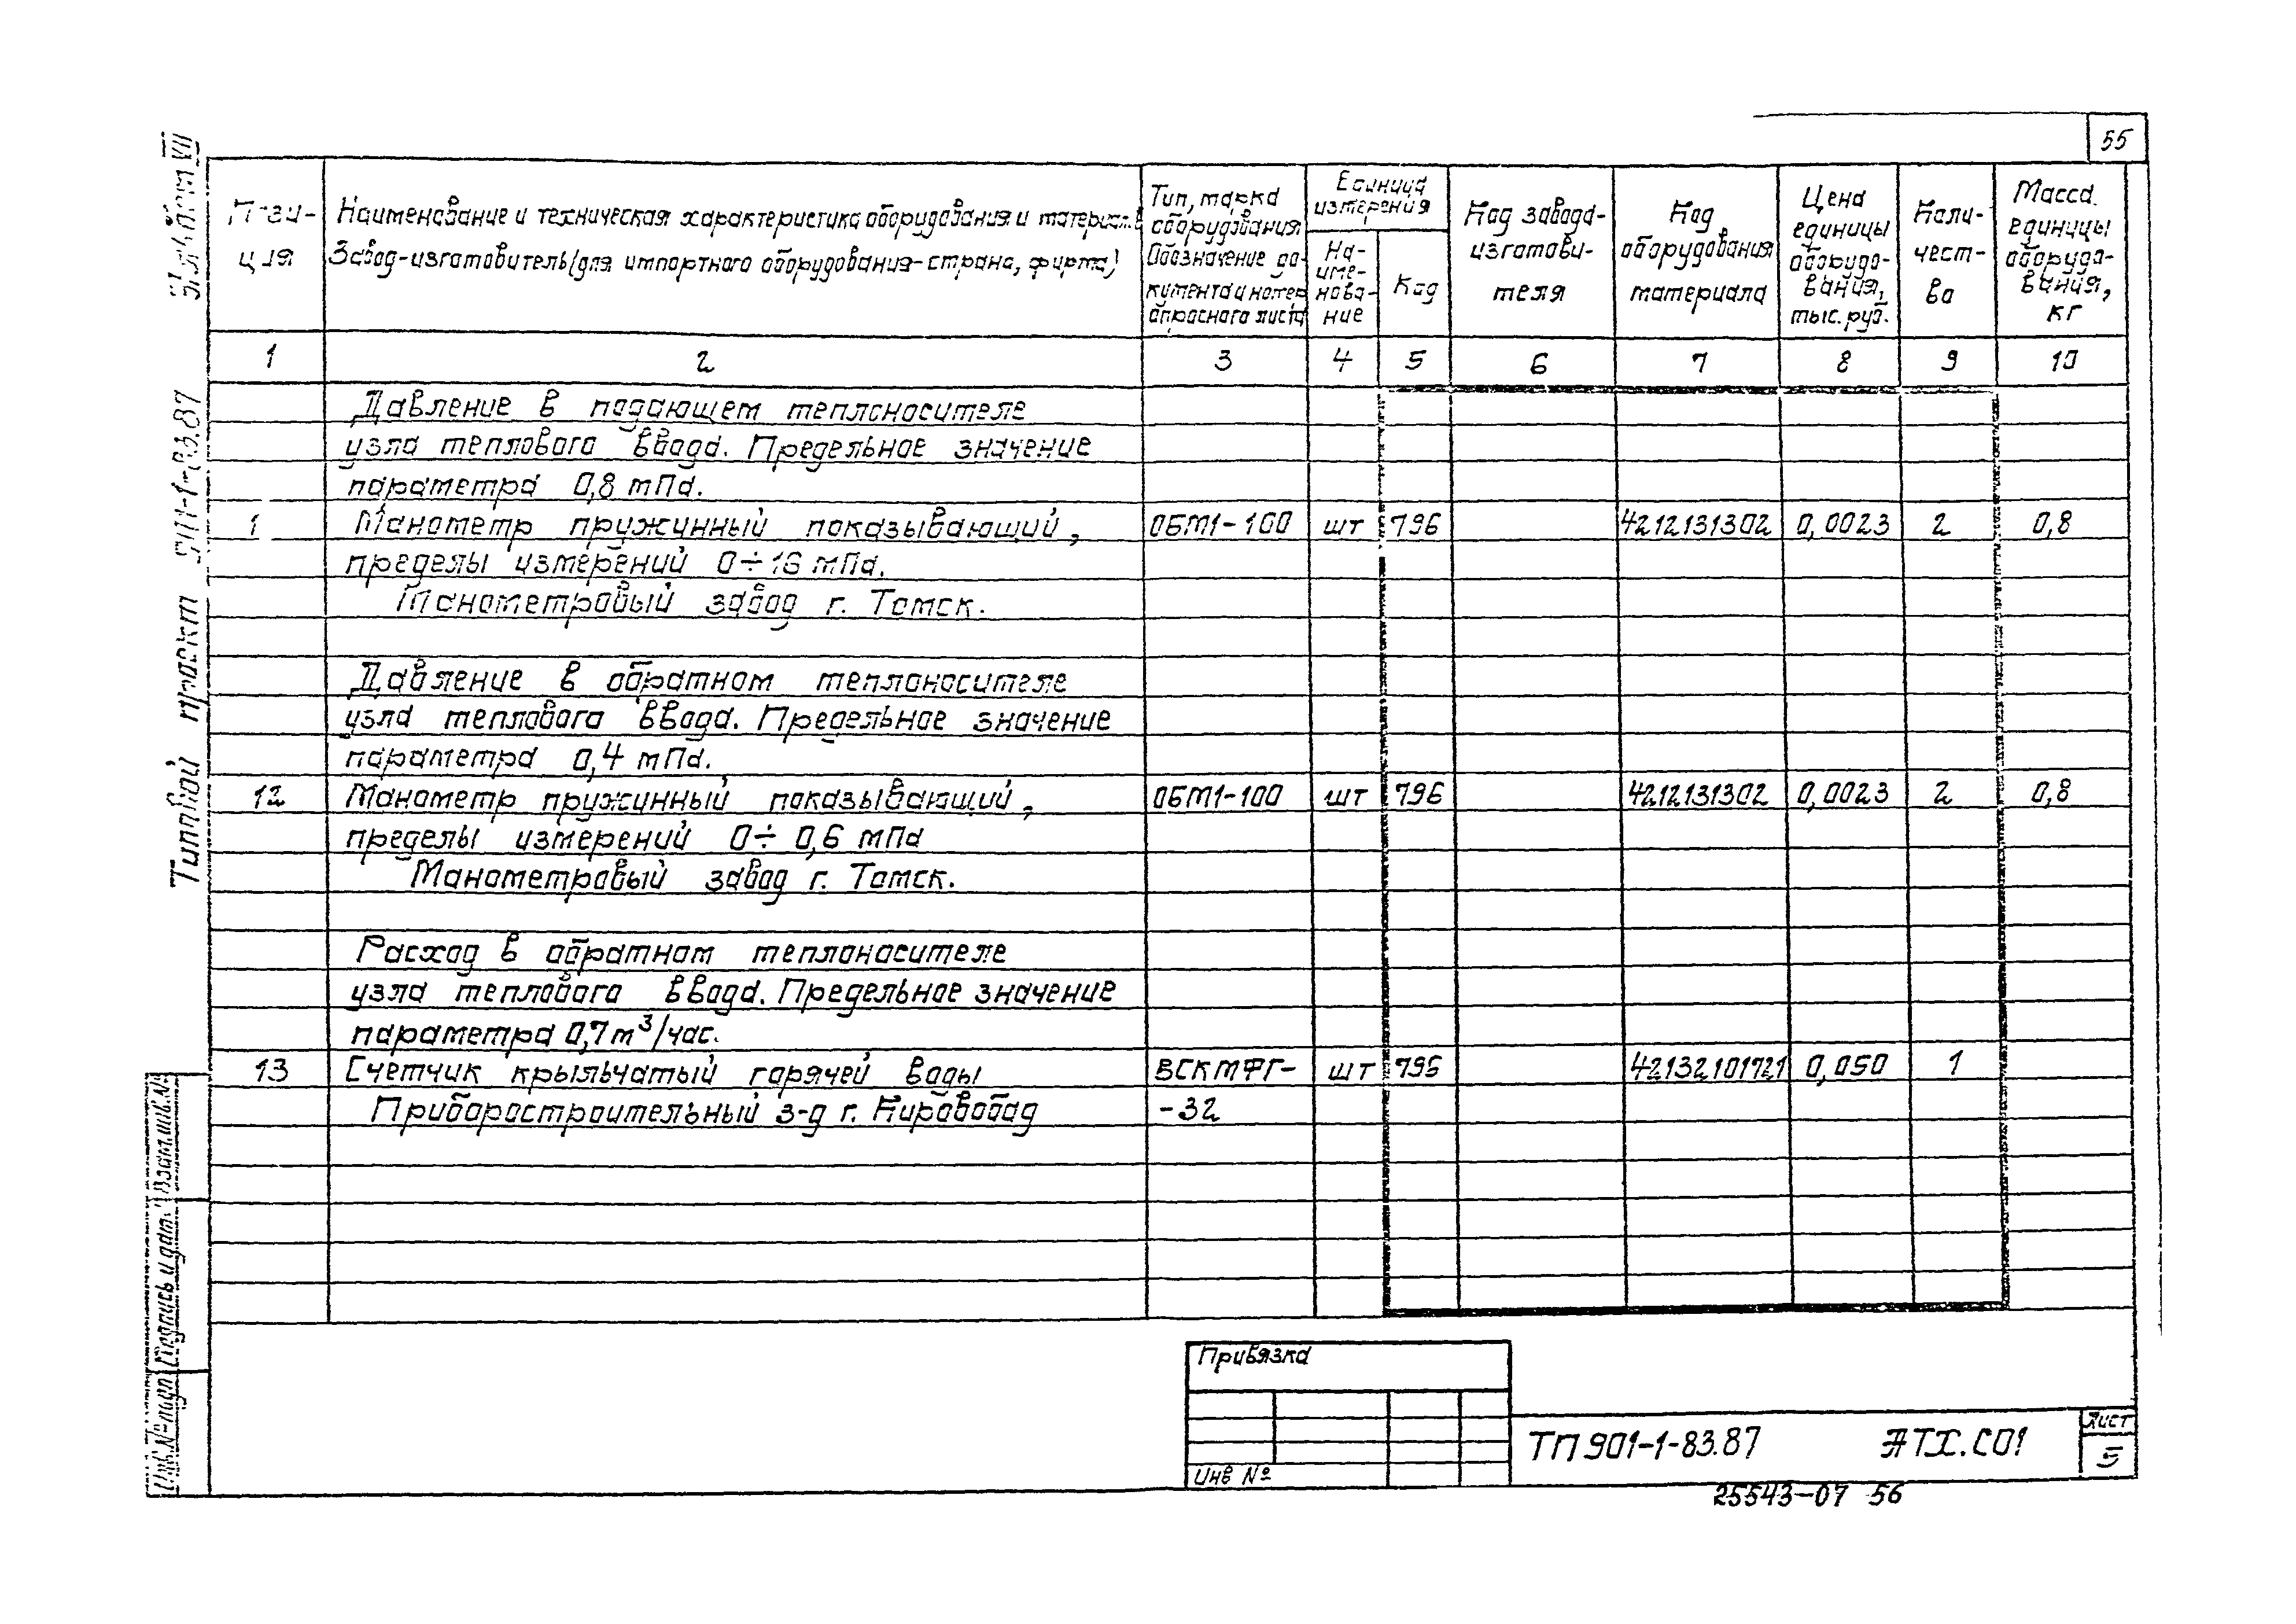 55
Пози- Наименование и техническая характеристика оборудования и материалов Тип, марка Единица Код завода- Код Цена Коли- Масса
ция Завод-изготовитель (для импортного оборудования-страна, фирма) оборудования измерения изготови- оборудования единицы чест- единицы
Обозначение до- На- Код теля материала оборудо- во оборудо-
кумента и номер име- вания, вания,
опросного листа нова- тыс. руб. кг
ние
1 2 3 4 5 6 7 8 9 10
Давление в подающем теплоносителе
узла теплового ввода. Предельное значение
параметра 0,8 мПа.
1 Манометр пружинный показывающий, ОБМ1-100 шт 796 4212131302 0,0023 2 0,8
пределы измерений 0÷16 мПа.
Манометровый завод г. Томск.
Давление в обратном теплоносителе
узла теплового ввода. Предельное значение
параметра 0,4 мПа.
12 Манометр пружинный показывающий, ОБМ1-100 шт 796 4212131302 0,0023 2 0,8
пределы измерений 0÷0,6 мПа
Манометровый завод г. Томск.
Расход в обратном теплоносителе
узла теплового ввода. Предельное значение
параметра 0,7 м³/час.
13 Счетчик крыльчатый горячей воды ВСКМФГ- шт 796 42132101721 0,050 1
Приборостроительный з-д г. Кировобад -32
Типовой проект 901-1-83.87 Альбом VII
Инв.№ подл Подпись и дата Взам.инв.№
Привязка
Инв №
ТП 901-1-83.87 АТХ.С01
Лист
5
25543-07 56